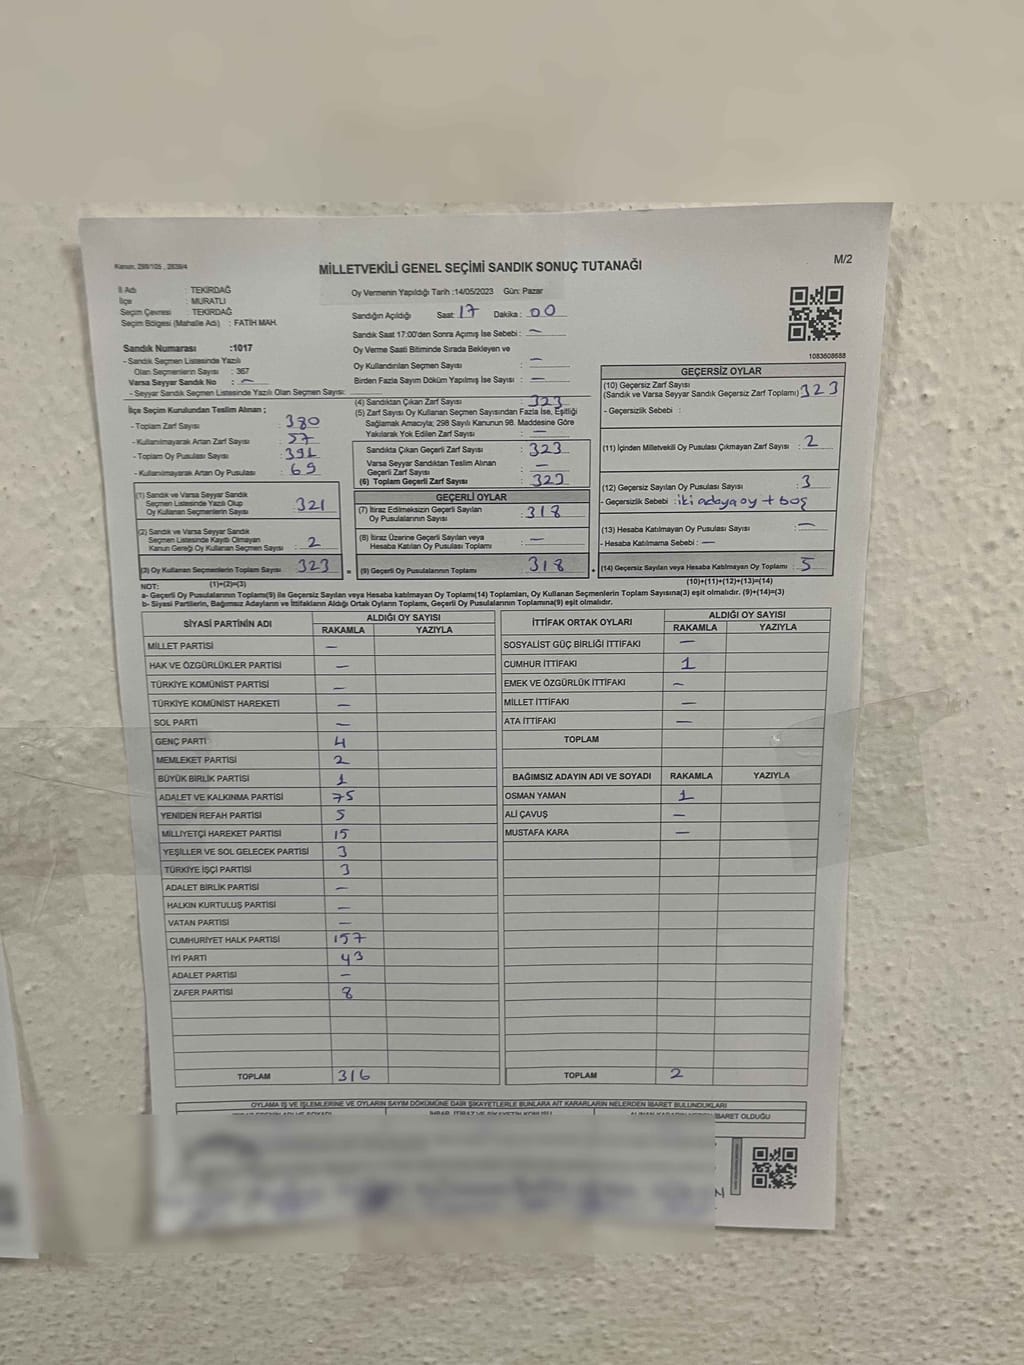 Kanun, 298/105 , 2839/4
MİLLETVEKİLİ GENEL SEÇİMİ SANDIK SONUÇ TUTANAĞI
M/2
İl Adı : TEKİRDAĞ
İlçe : MURATLI
Seçim Çevresi : TEKİRDAĞ
Seçim Bölgesi (Mahalle Adı) : FATİH MAH.
Oy Vermenin Yapıldığı Tarih :14/05/2023 Gün: Pazar
Sandığın Açıldığı Saat: 17 Dakika: 00
Sandık Saat 17:00'den Sonra Açılmış İse Sebebi : —
Oy Verme Saati Bitiminde Sırada Bekleyen ve
Oy Kullandırılan Seçmen Sayısı : —
Birden Fazla Sayım Döküm Yapılmış İse Sayısı : —
1083608688
Sandık Numarası :1017
- Sandık Seçmen Listesinde Yazılı
Olan Seçmenlerin Sayısı : 367
Varsa Seyyar Sandık No : —
- Seyyar Sandık Seçmen Listesinde Yazılı Olan Seçmen Sayısı:
İlçe Seçim Kurulundan Teslim Alınan ;
- Toplam Zarf Sayısı : 380
- Kullanılmayarak Artan Zarf Sayısı : 57
- Toplam Oy Pusulası Sayısı : 391
- Kullanılmayarak Artan Oy Pusulası : 69
(1) Sandık ve Varsa Seyyar Sandık
Seçmen Listesinde Yazılı Olup
Oy Kullanan Seçmenlerin Sayısı : 321
(2) Sandık ve Varsa Seyyar Sandık
Seçmen Listesinde Kayıtlı Olmayan
Kanun Gereği Oy Kullanan Seçmen Sayısı : 2
(3) Oy Kullanan Seçmenlerin Toplam Sayısı : 323 =
(1)+(2)=(3)
(4) Sandıktan Çıkan Zarf Sayısı : 323
(5) Zarf Sayısı Oy Kullanan Seçmen Sayısından Fazla İse, Eşitliği
Sağlamak Amacıyla; 298 Sayılı Kanunun 98. Maddesine Göre
Yakılarak Yok Edilen Zarf Sayısı : —
Sandıkta Çıkan Geçerli Zarf Sayısı : 323
Varsa Seyyar Sandıktan Teslim Alınan
Geçerli Zarf Sayısı : —
(6) Toplam Geçerli Zarf Sayısı : 323
GEÇERLİ OYLAR
(7) İtiraz Edilmeksizin Geçerli Sayılan
Oy Pusulalarının Sayısı : 318
(8) İtiraz Üzerine Geçerli Sayılan veya
Hesaba Katılan Oy Pusulası Toplamı : —
(9) Geçerli Oy Pusulalarının Toplamı : 318 +
GEÇERSİZ OYLAR
(10) Geçersiz Zarf Sayısı
(Sandık ve Varsa Seyyar Sandık Geçersiz Zarf Toplamı) : 323
- Geçersizlik Sebebi :
(11) İçinden Milletvekili Oy Pusulası Çıkmayan Zarf Sayısı : 2
(12) Geçersiz Sayılan Oy Pusulası Sayısı : 3
- Geçersizlik Sebebi : iki adaya oy + boş
(13) Hesaba Katılmayan Oy Pusulası Sayısı : —
- Hesaba Katılmama Sebebi : —
(14) Geçersiz Sayılan veya Hesaba Katılmayan Oy Toplamı : 5
(10)+(11)+(12)+(13)=(14)
NOT:
a- Geçerli Oy Pusulaları Toplamı(9) ila Geçersiz Sayılan veya Hesaba katılmayan Oy Toplamı(14) Toplamları, Oy Kullanan Seçmenlerin Toplam Sayısına(3) eşit olmalıdır. (9)+(14)=(3)
b- Siyasi Partilerin, Bağımsız Adayların ve İttifakların Aldığı Ortak Oyların Toplamı, Geçerli Oy Pusulalarının Toplamına(9) eşit olmalıdır.
SİYASİ PARTİNİN ADI ALDIĞI OY SAYISI
RAKAMLA YAZIYLA
MİLLET PARTİSİ —
HAK VE ÖZGÜRLÜKLER PARTİSİ —
TÜRKİYE KOMÜNİST PARTİSİ —
TÜRKİYE KOMÜNİST HAREKETİ —
SOL PARTİ —
GENÇ PARTİ 4
MEMLEKET PARTİSİ 2
BÜYÜK BİRLİK PARTİSİ 1
ADALET VE KALKINMA PARTİSİ 75
YENİDEN REFAH PARTİSİ 5
MİLLİYETÇİ HAREKET PARTİSİ 15
YEŞİLLER VE SOL GELECEK PARTİSİ 3
TÜRKİYE İŞÇİ PARTİSİ 3
ADALET BİRLİK PARTİSİ —
HALKIN KURTULUŞ PARTİSİ —
VATAN PARTİSİ —
CUMHURİYET HALK PARTİSİ 157
İYİ PARTİ 43
ADALET PARTİSİ —
ZAFER PARTİSİ 8
TOPLAM 316
İTTİFAK ORTAK OYLARI ALDIĞI OY SAYISI
RAKAMLA YAZIYLA
SOSYALİST GÜÇ BİRLİĞİ İTTİFAKI —
CUMHUR İTTİFAKI 1
EMEK VE ÖZGÜRLÜK İTTİFAKI —
MİLLET İTTİFAKI —
ATA İTTİFAKI —
TOPLAM
BAĞIMSIZ ADAYIN ADI VE SOYADI RAKAMLA YAZIYLA
OSMAN YAMAN 1
ALİ ÇAVUŞ —
MUSTAFA KARA —
TOPLAM 2
OYLAMA İŞ VE İŞLEMLERİNE VE OYLARIN SAYIM DÖKÜMÜNE DAİR ŞİKAYETLERLE BUNLARA AİT KARARLARIN NELERDEN İBARET BULUNDUKLARI
İBARET OLDUĞU